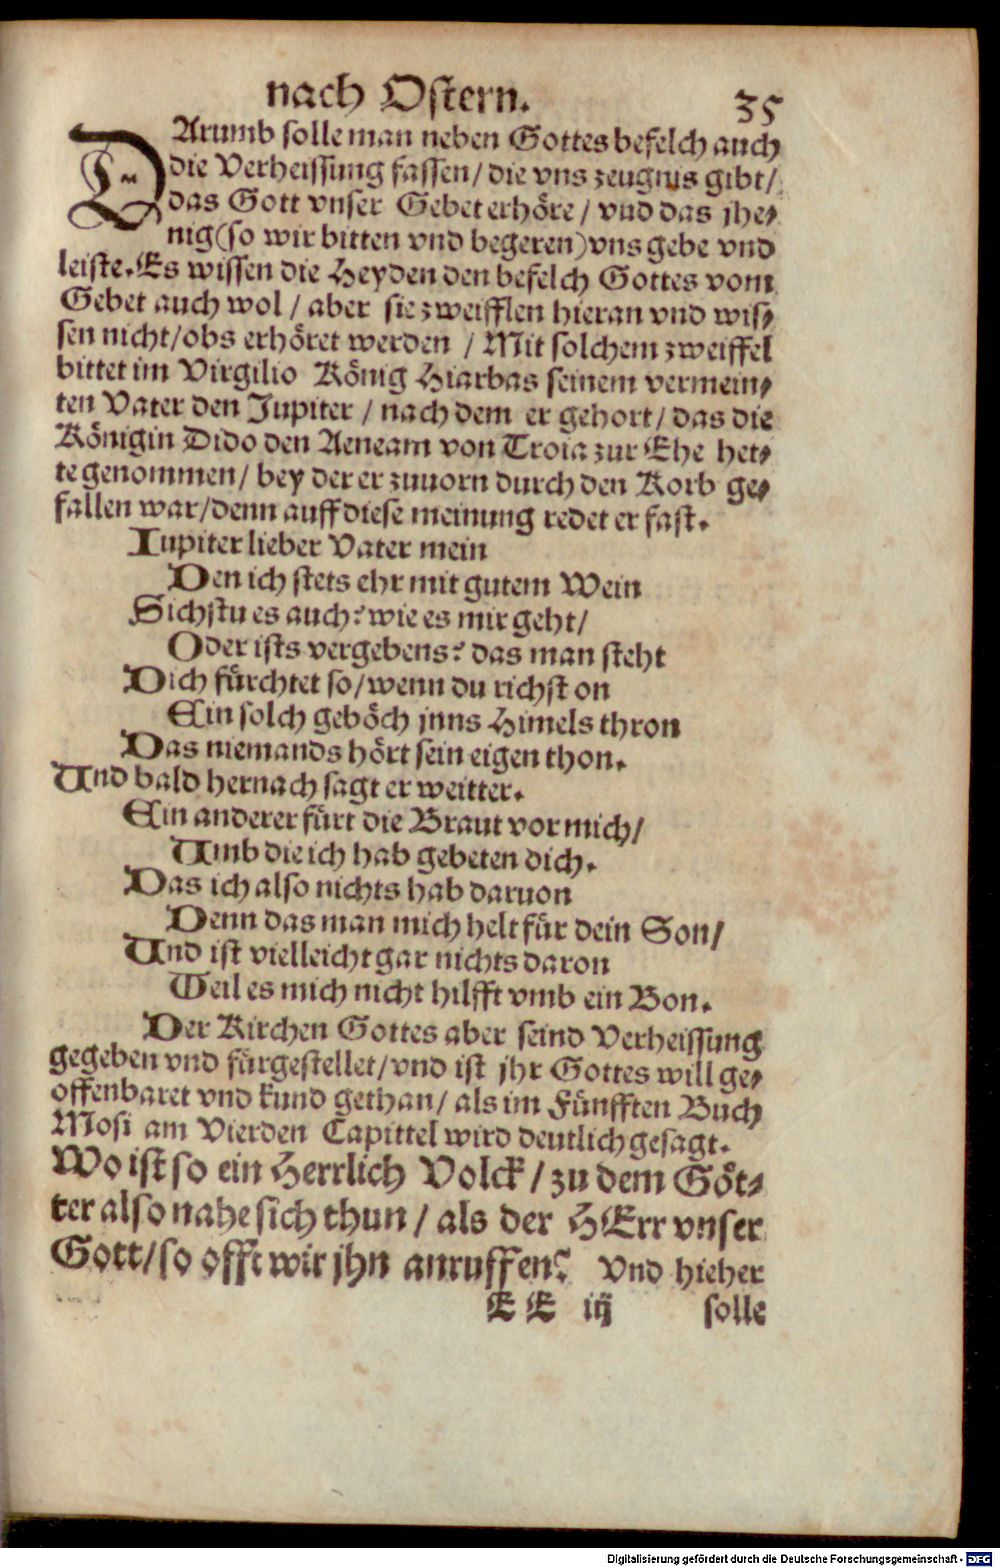 nach Ostern. 35
DArumb solle man neben Gottes befelch auch
die Verheissung fassen/ die vns zeugnis gibt/
das Gott vnser Gebet erhöre / vnd das jhe-
nig (so wir bitten vnd begeren) vns gebe vnd
leiste. Es wissen die Heyden den befelch Gottes vom
Gebet auch wol / aber sie zweifflen hieran vnd wis-
sen nicht/obs erhöret werden / Mit solchem zweiffel
bittet im Virgilio König Hiarbas seinem vermein-
ten Vater den Jupiter / nach dem er gehort/ das die
Königin Dido den Aeneam von Troia zur Ehe het-
te genommen/ bey der er zuuorn durch den Korb ge-
fallen war/denn auff diese meinung redet er fast.
Iupiter lieber Vater mein
Den ich stets ehr mit gutem Wein
Sichstu es auch? wie es mir geht/
Oder ists vergebens? das man steht
Dich fürchtet so/wenn du richst on
Ein solch geböch jnns Himels thron
Das niemands hört sein eigen thon.
Und bald hernach sagt er weitter.
Ein anderer fürt die Braut vor mich/
Umb die ich hab gebeten dich.
Das ich also nichts hab daruon
Denn das man mich helt für dein Son/
Und ist vielleicht gar nichts daron
Weil es mich nicht hilfft vmb ein Bon.
Der Kirchen Gottes aber seind Verheissung
gegeben vnd fürgestellet/vnd ist jhr Gottes will ge-
offenbaret vnd kund gethan/ als im Fünfften Buch
Mosi am Vierden Capittel wird deutlich gesagt.
Wo ist so ein Herrlich Volck / zu dem Göt-
ter also nahe sich thun / als der HErr vnser
Gott/so offt wir jhn anruffen? Vnd hieher
EE iij solle
Digitalisierung gefördert durch die Deutsche Forschungsgemeinschaft - DFG